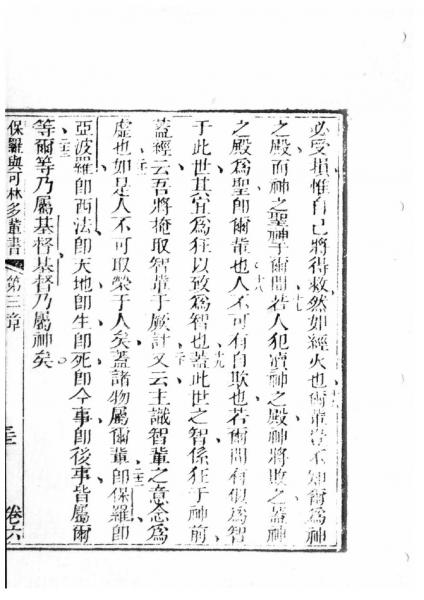 必受損惟自己將得救然如經火也爾輩豈不知爾為神
之殿而神之聖神于爾間若人犯瀆神之殿神將敗之蓋神
之殿為聖即爾輩也人不可有自欺也若爾間有似為智
于此世其宜為狂以致為智也蓋此世之智係狂于神前
蓋經云吾將掩取智輩于厥計又云主識智輩之意念為
虛也如是人不可取榮于人矣蓋諸物屬爾輩即保羅即
亞波羅即西法即天地即生即死即今事即後事皆屬爾
等爾等乃屬基督基督乃屬神矣
保羅與可林多輩書 第三章 三 卷六